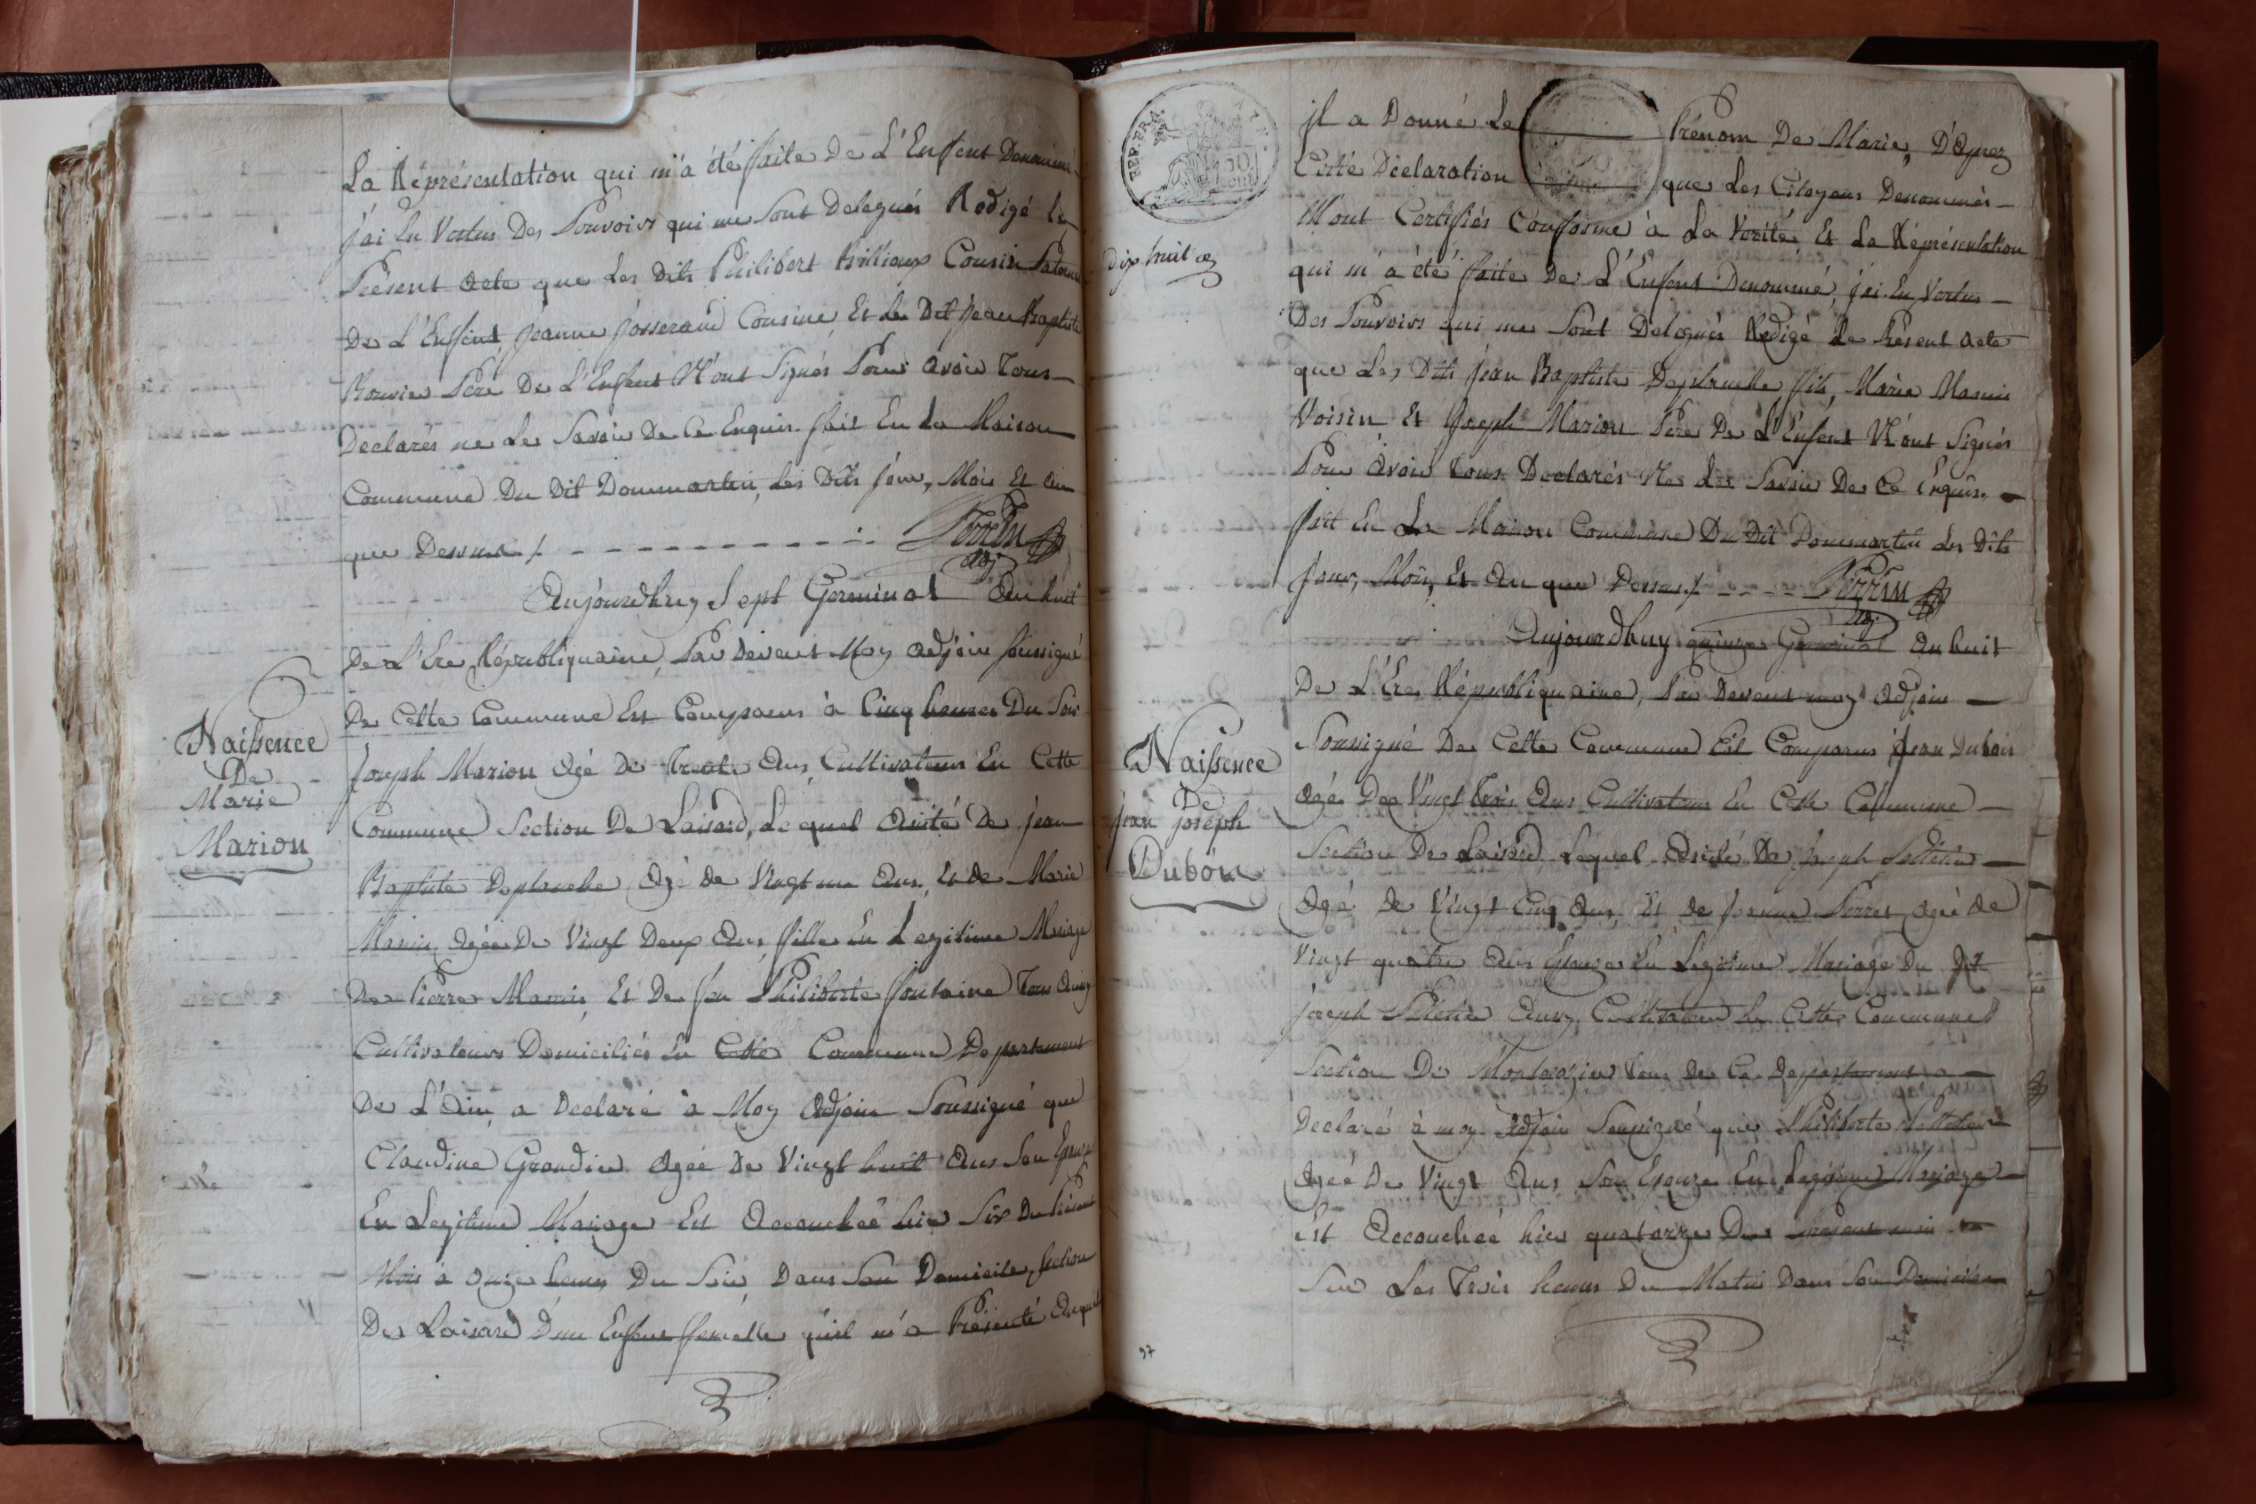 La Représentation qui m'a été faite De L'Enfent Denommé
j'ai En Vertus Des Pouvoirs qui me Sont Delegués Redigé le
Présent Acte que Les Dits Philibert Cousin Paternel
De L'Enfent, Jeanne Josserand Cousine Et Le Dit Jean Baptiste
Père De L'Enfent N'ont Signés Pour avoir Tous
Declarés ne Le Savoir De Ce Enquis fait En La Maison
Commune Du Dit Dommartin, Les Dits Jour, Mois Et an
que Dessus /. Perrin
adj
Aujourdhuy Sept Germinal An huit
De L'Ere Républiquaine, Par Devent Moy Adjoin Soussigné
De Cette Commune Est Comparus à Cinq heures Du Soir
Joseph Marion Agé De Trente Ans Cultivateur En Cette
Commune Section De Laisard, Lequel Assité De jean
Baptiste Deplanche Agé De Vingt un Ans, Et De Marie
Mamis Agée De Vingt Deux Ans fille En Legitime Mariage
De Pierre Mamis, Et De feu Philiberte fontaine Tous
Cultivateurs Domiciliés En Cette Commune Departement
De L'Ain, a Declaré à Moy Adjoin Soussigné que
Claudine Grandin Agée De Vingt huit Ans Son Epouze
En Legitime Mariage Est Accouchée hier Six Du Présent
Mois à onze heures Du Soir, Dans Son Domicile, Section
De Laisard D'un Enfent femelle qu'il m'a Présenté Auquel
Naissence
De
Marie
Marion
Il a Donné Le Prénom De Marie, D'Aprez
Cette Déclaration que Les Citoyens Denommés
M'ont Certifiés Conforme à La Vérité Et La Réprésentation
qui m'a été faite De L'Enfent Denommé, j'ai En Vertus
Des Pouvoirs qui me Sont Delegués Redigé Le Présent Acte
que Les Dits Jean Baptiste Deplanche fils, Marie Mamis
Voisin Et Joseph Marion Père De L'Enfent N'ont Signés
Pour Avoir Tous Declarés Ne Le Savoir De Ce Enquis.
fait En La Maison Commune Du Dit Dommartin Les Dits
Jour, Mois, Et An que Dessus /. Perrin
adj
Aujourdhuy quinze Germinal An huit
De L'Ere Républiquaine, Par Devent moy Adjoin
Soussigné De Cette Commune Est Comparus Jean Dubois
Agé De Vingt Trois Ans Cultivateur En Cette Commune
Section De Laisard Lequel Assité De Joseph
Agé de Vingt Cinq Ans, Et de Jeanne Perret Agée de
Vingt quatre Ans Epouze En Legitime Mariage Du Dit
Joseph Cultivateur En Cette Commune
Section De Tous De Ce Departement a
Declaré à moy Adjoin Soussigné que Philiberte
Agée De Vingt Ans Son Epouze En Legitime Mariage
Est Accouchée hier quatorze Du Présent mois
Sur Les Trois heures Du Matin Dans Son Domicile
Dix huit
Naissence
De
jean joseph
Dubois
97